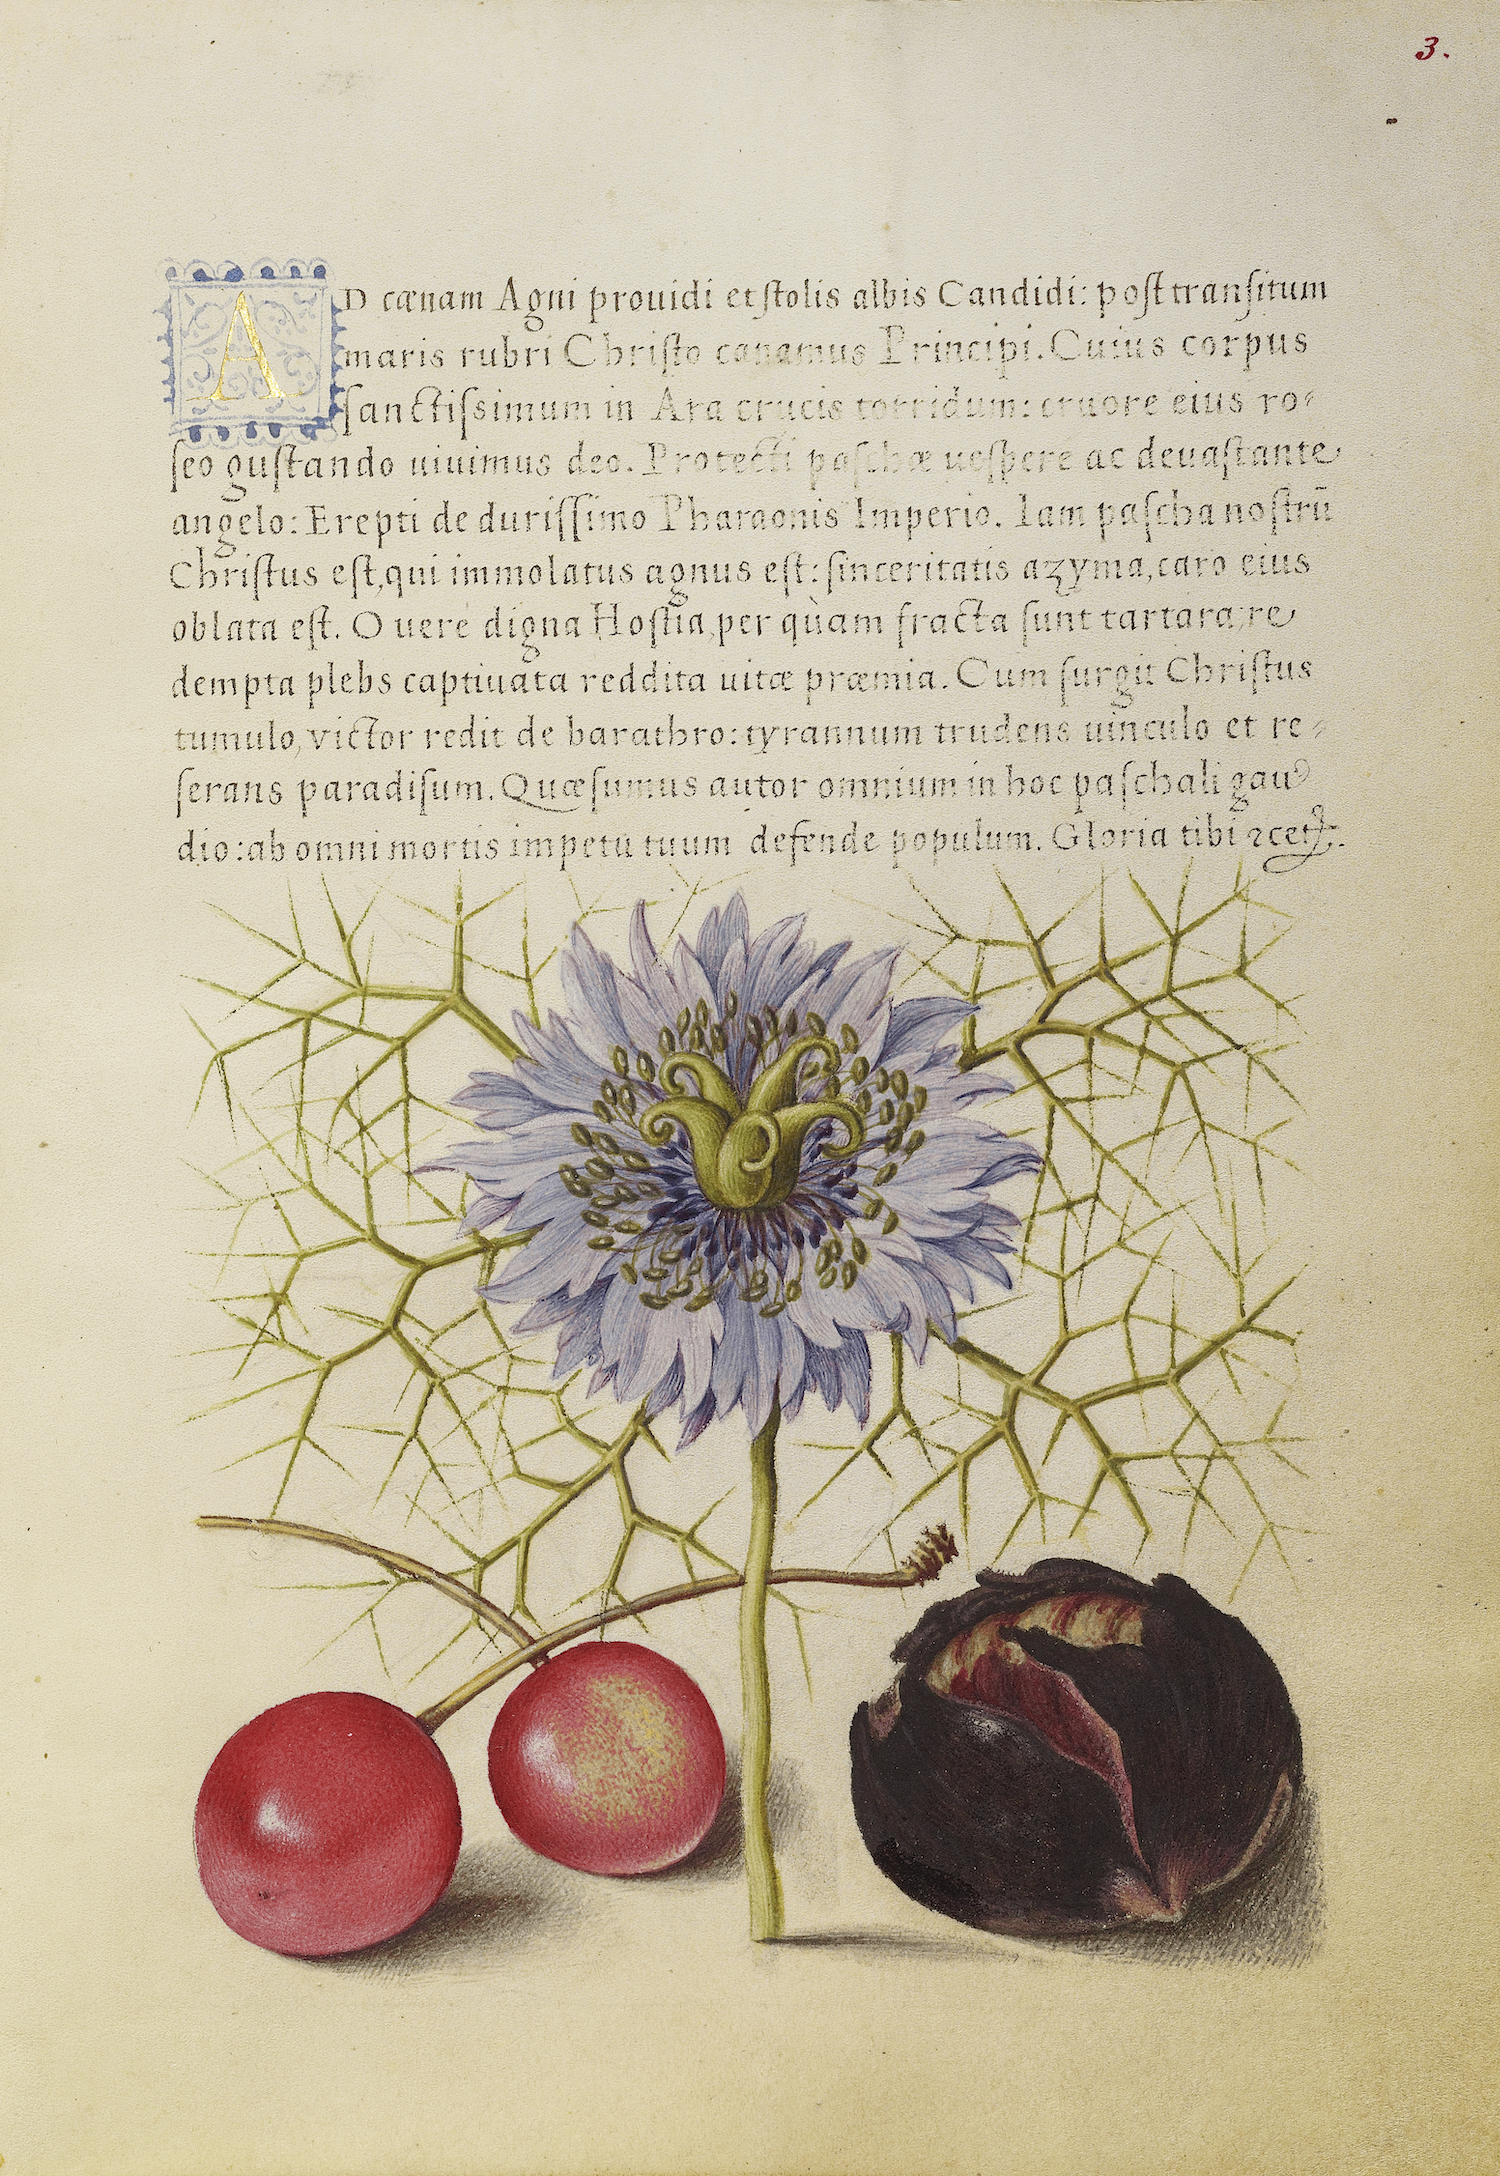 3.
AD cænam Agni prouidi et stolis albis Candidi: post transitum
maris rubri Christo canamus Principi. Cuius corpus
sanctissimum in Ara crucis torridum: cruore eius ro⸗
seo gustando uiuimus deo. Protecti paschæ uespere ac deuastante
angelo: Erepti de durissimo Pharaonis Imperio. Iam pascha nostrū
Christus est, qui immolatus agnus est: sinceritatis azyma, caro eius
oblata est. O uere digna Hostia, per quàm fracta sunt tartara, re
dempta plebs captiuata reddita uitæ præmia. Cum surgit Christus
tumulo, victor redit de barathro: tyrannum trudens uinculo et re⸗
serans paradisum. Quæsumus autor omnium in hoc paschali gau
dio: ab omni mortis impetu tuum defende populum. Gloria tibi